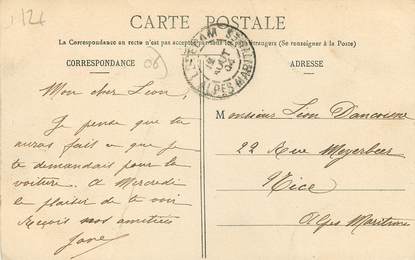 1124
CARTE POSTALE
La Correspondance au recto n'est pas acceptée par tous les pays étrangers (Se renseigner à la Poste)
CORRESPONDANCE
06
ADRESSE
AOUT
04
ALPES MARIT
Mon cher Léon,
Je pense que tu
auras fait ce que je
te demandais pour la
voiture. A Mercredi
le plaisir de te voir
Reçois nos amitiés
Monsieur Léon Dancoisne
22 Rue Meyerbeer
Nice
Alpes Maritimes